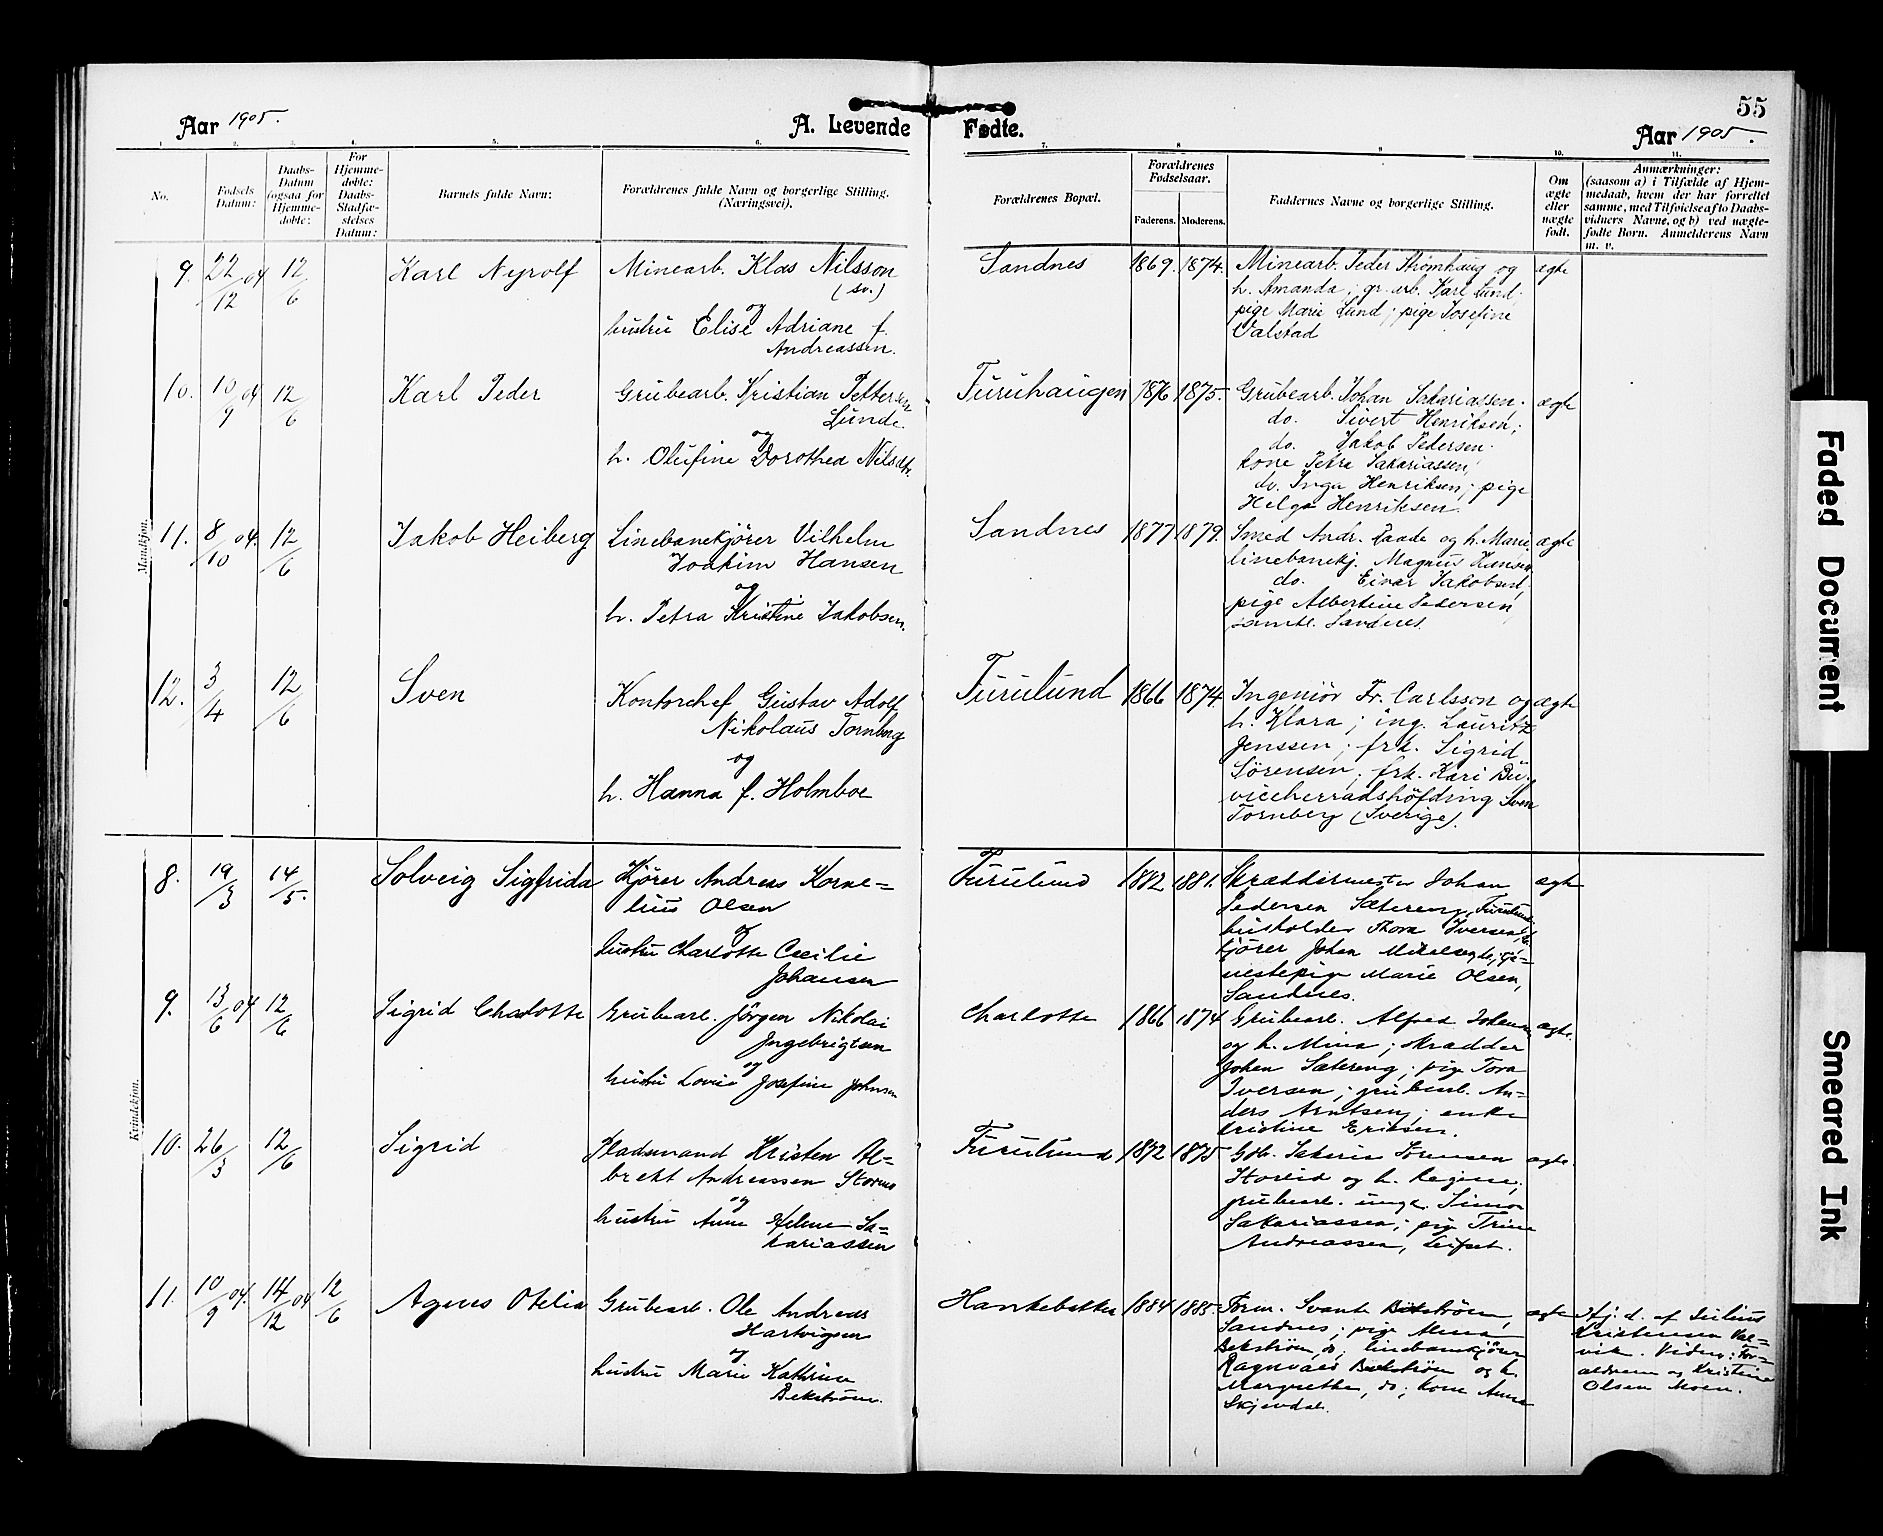 55
Aar 1905.
A. Levende Fødte.
Aar 1905.
1. 2. 3. 4. 5. 6. 7. 8. 9. 10. 11.
No.
Fødsels Datum:
Daabs-Datum (ogsaa for Hjemme-døbte:
For Hjemme-døbte: Daabs-Stadfæ-stelses Datum:
Barnets fulde Navn:
Forældrenes fulde Navn og borgerlige Stilling.
(Næringsvei).
Forældrenes Bopæl.
Forældrenes Fødselsaar.
Faderens. Moderens.
Faddernes Navne og borgerlige Stilling.
Om ægte eller uægte født.
Anmærkninger:
(saasom a) i Tilfælde af Hjem-
medaab, hvem der har forrettet
samme, med Tilføielse af to Daabs-
vidners Navne, og b) ved uægte-
fødte Børn. Anmelderens Navn
m. v.
Mandkjøn.
9. 22/12 04 12/6 Karl Nyrolf
Minearb. Klas Nilsson
(sv.)
og
hustru Elise Adriane f.
Andreassen.
Sandnes 1869. 1874.
Minearb. Peder Strømhaug og
h. Amanda; gr.arb. Karl Lund;
pige Marie Lund; pige Josefine
Valstad
ægte
10. 10/9 04 12/6 Karl Peder
Grubearb. Kristian Pettersen
Lunde
og
h. Olufine Dorothea Nilsdtr.
Furuhaugen 1876 1875.
Grubearb. Johan Sakariassen;
do. Sivert Henriksen;
do. Jakob Pedersen.
kone Petra Sakariassen;
do. Inga Henriksen; pige
Helga Henriksen.
ægte
11. 8/10 04. 12/6 Jakob Heiberg
Linebanekjører Vilhelm
Joakim Hansen
og
h. Petra Kristine Jakobsen.
Sandnes 1877 1879.
Smed Andr. Raade og h. Marie;
linebanekj. Magnus Hansen
do. Einar Jakobsen;
pige Albertine Pedersen,
samtl. Sandnes.
ægte
12. 3/4 12/6 Sven
Kontorchef Gustav Adolf
Nikolaus Tornberg
og
h. Hanna f. Holmboe
Furulund 1866 1874.
Ingeniør Fr. Carlsson og
h. Klara; ing. Lauritz
Jenssen; frk. Sigrid
Sørensen; frk. Kari Bu;
viceherradshöfding Sven
Tornberg (Sverige).
ægte
Kvindekjøn.
8. 19/3 14/5. Solveig Sigfrida
Kjører Andreas Korne=
lius Olsen
og
hustru Charlotte Cecilie
Johansen
Furulund 1882 1881.
Skræddermester Johan
Pedersen Sætereng, Furulund;
husholder Thora Iversen, do;
kjører Johan Mikalsen, do; tje=
nestepige Marie Olsen,
Sandnes.
ægte
9. 13/6 04 12/6 Sigrid Charlotte
Grubearb. Jørgen Nikolai
Ingebrigtsen
og
hustru Lovise Josefine Johnsen
Charlotte 1866 1874
Grubearb. Alfred Johansen
og h. Mina; skrædder
Johan Sætereng; pige Tora
Iversen; grubearb. An=
ders Arntsen; enke
Kristine Eriksen.
ægte.
10. 26/3 12/6 Sigrid
Pladsmand Kristen Al=
brekt Andreassen Stormo
og
hustru Anne Helene Sa=
kariassen
Furulund 1872 1875
Gdb. Sakarias Sørensen
og h. Regine;
grubearb. ungk. Simon
Sakariassen; pige Trine
Andreassen,
ægte.
11. 10/9 04. 14/12 04 12/6 Agnes Otelia
Grubearb. Ole Andreas
Hartvigsen
og
hustru Marie Kathrine
Bekstrøm.
Hankebakken 1884 1885.
Form. Svante Bekstrøm,
Sandnes; pige Alma
Bekstrøm, do; linebanekjører
Ragnvald Bekstrøm og h.
Margrethe, do; kone Anna
Skjevdal.
ægte
Hj. d. af Julius
Kristensen Val=
vik. Vidner: For=
ældrene og Kristine
Olsen Moen.
Faded Document
Smeared Ink